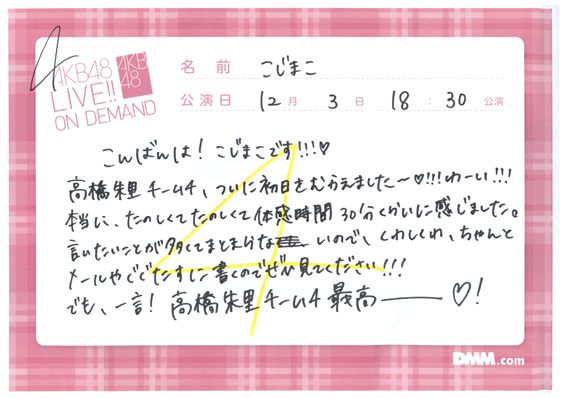 4
AKB48
LIVE!!
ON DEMAND
AKB
48
名前 こじまこ
公演日 12月 3日 18:30 公演
こんばんは! こじまこです!!!♡
高橋朱里チーム4、ついに初日をむかえました〜♡!!!わーい!!!
本当に、たのしくてたのしくて体感時間30分くらいに感じました。
言いたいことが多くてまとまらないので、くわしくわ、ちゃんと
メールやぐぐたすに書くのでぜひ見てください!!!
でも、一言! 高橋朱里チーム4 最高――♡!
DMM.com